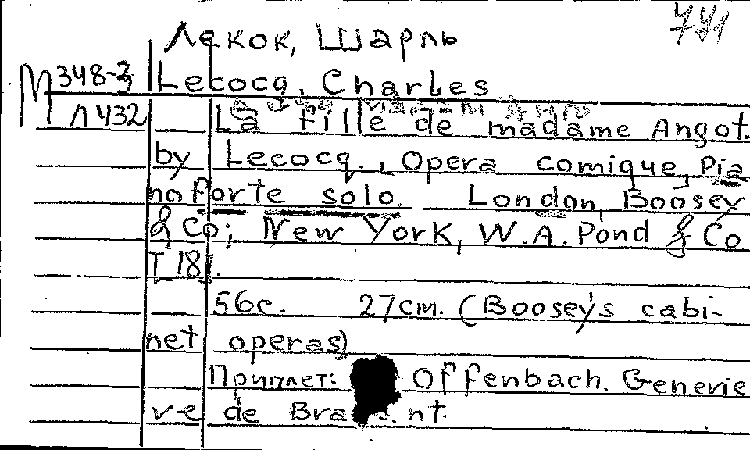 771
Лекок, Шарль
М 348-3 Lecocq, Charles
Л 432 La fille de madame Angot.
by Lecocq., Opera comique, Pia
noforte solo. London, Boosey
& Co; New York, W.A. Pond & Co
[ 18 ].
56c. 27cm. (Boosey's cabi-
net operas)
Приплет: Offenbach. Genevie
ve de Brabant.